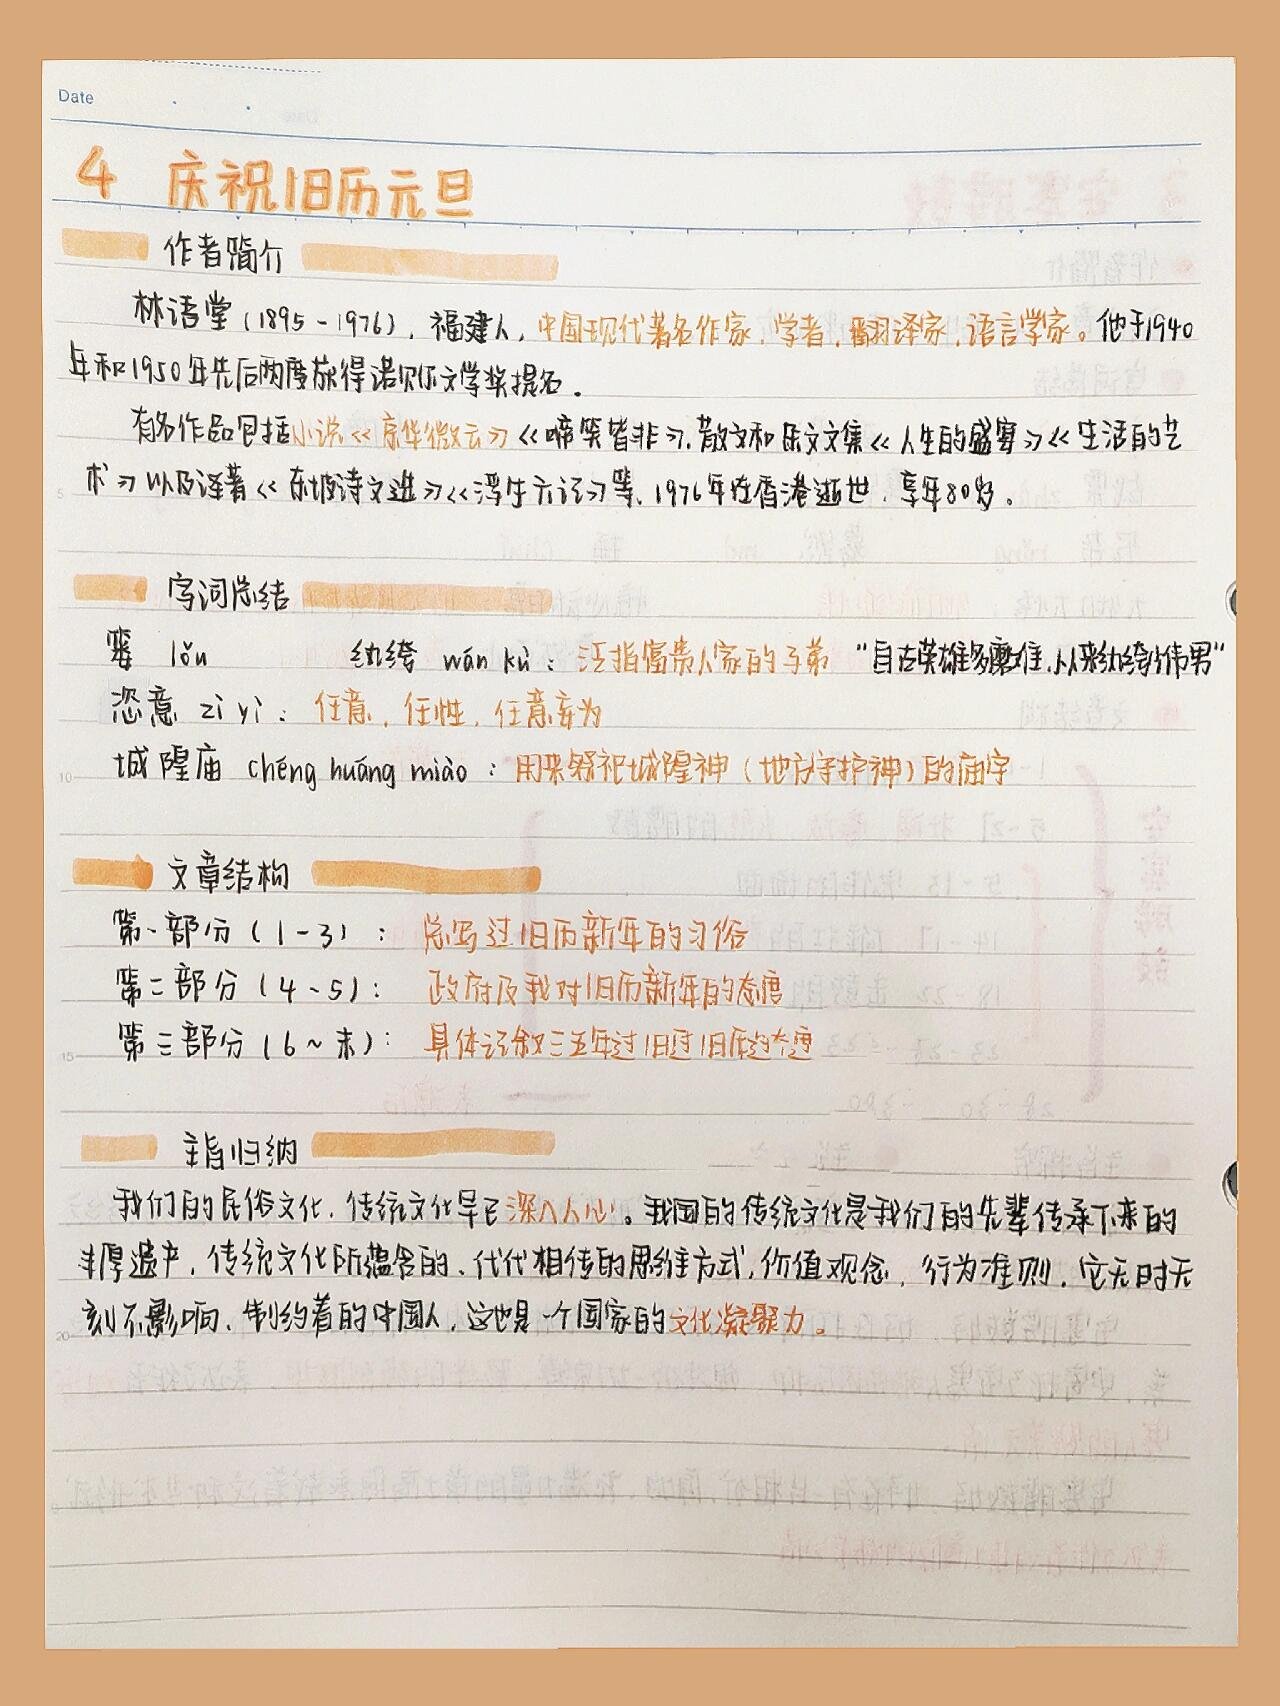 Date
4 庆祝旧历元旦
作者简介
林语堂(1895-1976),福建人,中国现代著名作家,学者,翻译家,语言学家。他于1940
年和1950年先后两度获得诺贝尔文学奖提名。
有名作品包括小说《京华微云》《啼笑皆非》,散文和杂文文集《人生的盛宴》《生活的艺
术》以及译著《东坡诗文选》《浮生六记》等,1976年在香港逝世,享年80岁。
字词总结
篓 lǒu 纨绔 wán kù:泛指富贵人家的子弟 “自古英雄多磨难,从来纨绔少伟男”
恣意 zì yì:任意,任性,任意妄为
城隍庙 chéng huáng miào:用来祭祀城隍神(地方守护神)的庙宇
文章结构
第一部分(1-3):总写过旧历新年的习俗
第二部分(4-5):政府及我对旧历新年的态度
第三部分(6~末):具体记叙三五年过旧过旧历
主旨归纳
我们的民俗文化,传统文化早已深入人心。我国的传统文化是我们的先辈传承下来的
丰厚遗产,传统文化所蕴含的、代代相传的思维方式,价值观念,行为准则,它无时无
刻不影响、制约着的中国人,这也是一个国家的文化凝聚力。
5
10
15
20